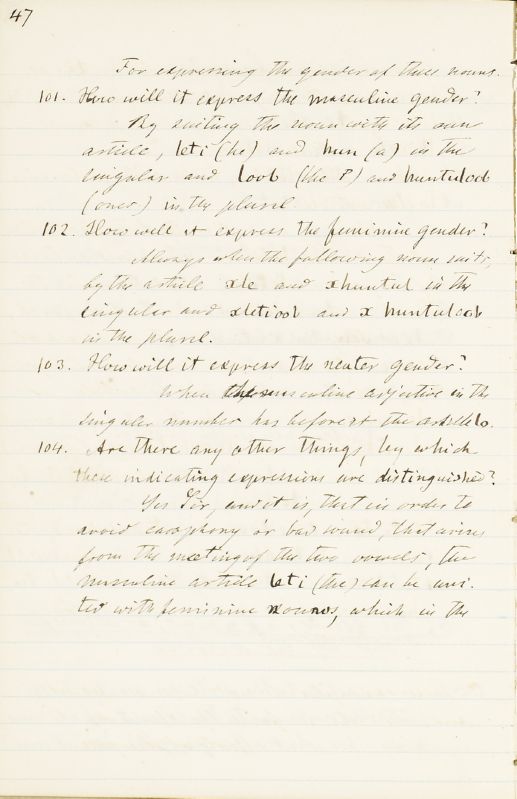 47
For expressing the gender of these nouns.
101. How will it express the masculine gender?
By uniting the noun with its own
article, leti (he) and hun (a) in the
singular and loob (the P) and huntuloob
(ones) in the plural
102. How will it express the feminine gender?
Always when the following noun unites,
by the article xle and xhuntul in the
singular and xletioob and x huntuloob
in the plural.
103. How will it express the neuter gender?
When the masculine adjective in the
singular number has before it the article lo.
104. Are there any other things, by which
these indicating expressions are distinguished?
Yes Sir, and it is, that in order to
avoid cacophony or bad sound, that arises
from the meeting of the two vowels, the
masculine article leti (the) can be uni-
ted with feminine nouns, which in the